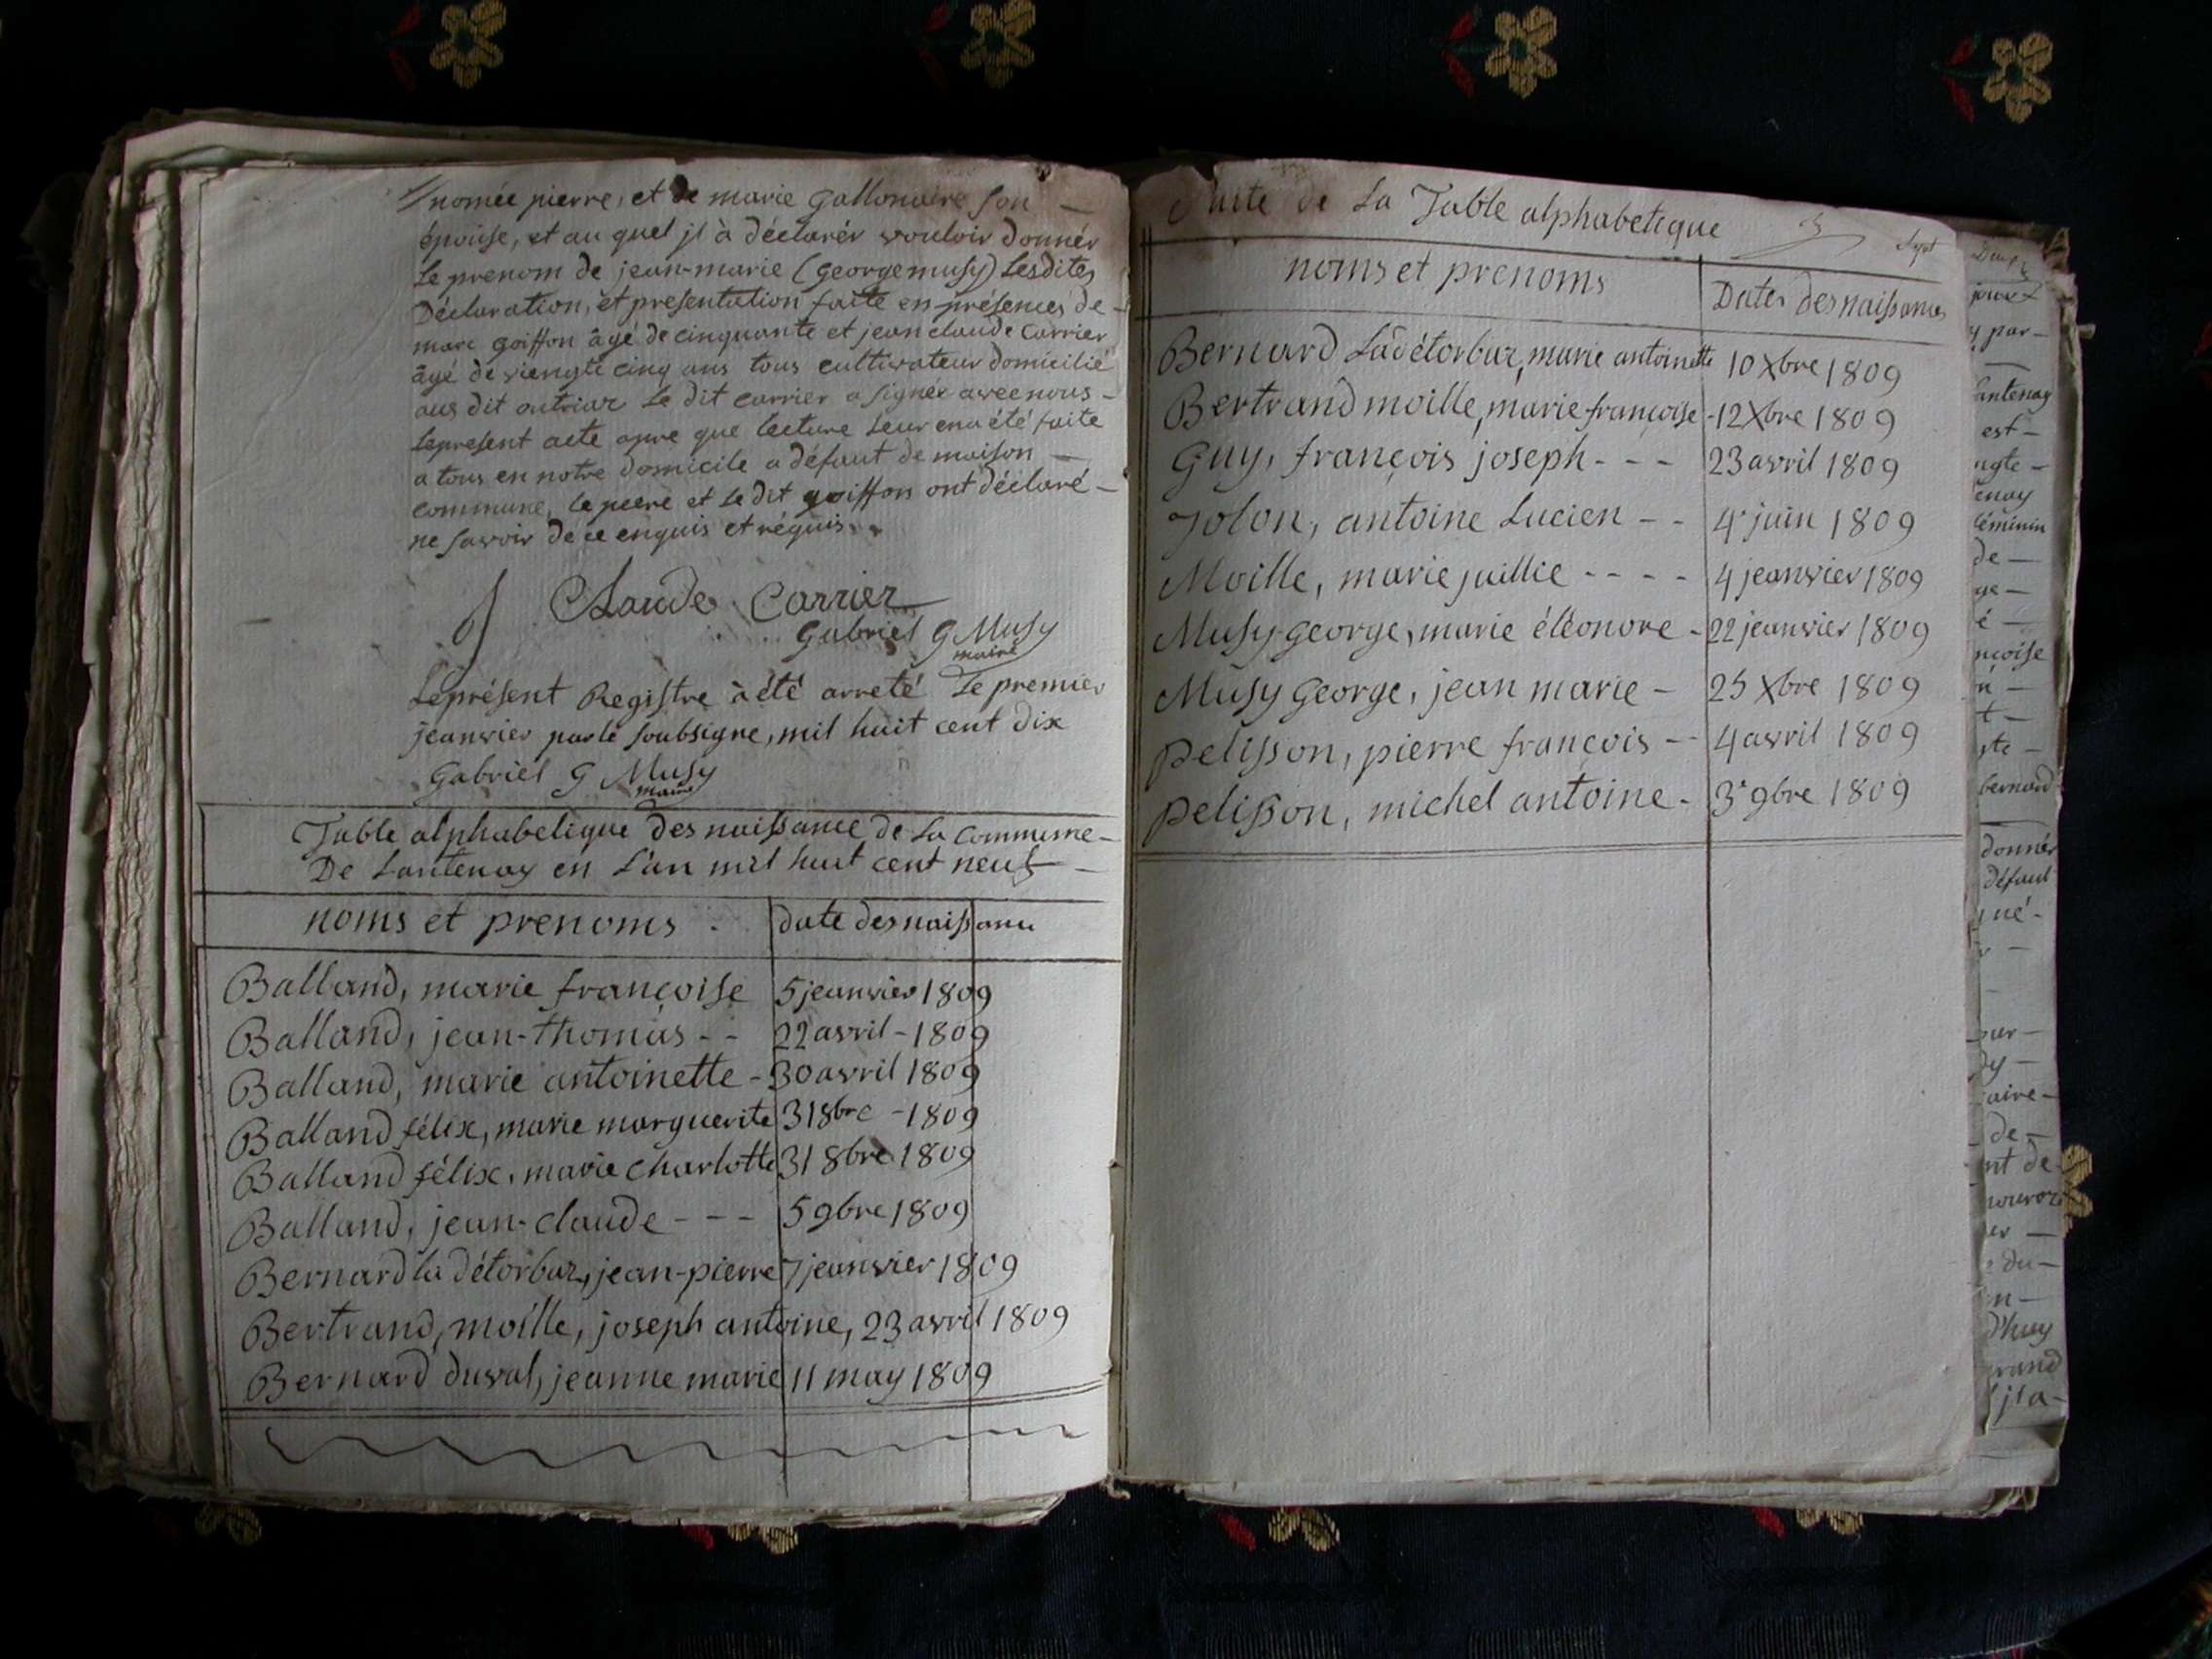 nomée pierre, et de marie gallonaire son
épouse, et au quel jl à déclarér vouloir donnér
Le prenom de jean-marie (georgemusy) Lesdites
Déclaration, et presentation faite en présences de
marc goiffon âgé de cinquante et jean claude Carrier
âgé de viengte cinq ans tous cultivateur domicilié
aus dit outriaz Le dit carrier a signér avec nous
Lepresent acte apre que lecture Leur en a été faite
a tous en notre domicile a défaut de maison
commune, le peere et Le dit goiffon ont déclaré
ne savoir de ce enquis et réquis
Claude Carrier
Gabriel G Musy
maire
Leprésent Registre à été arreté Le premier
jeanvier par le soubsigne, mil huit cent dix
Gabriel G Musy
maire
Table alphabetique des naissance de La commune
De Lantenay en L'an mil huit cent neuf
noms et prenoms
date des naissance
Balland, marie françoise 5 jeanvier 1809
Balland, jean-thomas - - 22 avril - 1809
Balland, marie antoinette - 30 avril 1809
Balland félix, marie marguerite 31 8bre - 1809
Balland félix, marie charlotte 31 8bre 1809
Balland, jean-claude - - - 5 9bre 1809
Bernard la détorbaz, jean-pierre 7 jeanvier 1809
Bertrand, moille, joseph antoine, 23 avril 1809
Bernard duval, jeanne marie 11 may 1809
Suite de La Table alphabetique
Sept
noms et prenoms
Dates des naissances
Bernard Ladétorbaz, marie antoinette 10 Xbre 1809
Bertrand moille, marie françoise - 12 Xbre 1809
Guy, françois joseph - - - 23 avril 1809
Jolon, antoine Lucien - - 4 juin 1809
Moille, marie juillie - - - - 4 jeanvier 1809
Musy george, marie éléonore - 22 jeanvier 1809
Musy George, jean marie - 25 Xbre 1809
Pelisson, pierre françois - - 4 avril 1809
Pelisson, michel antoine - 3 9bre 1809
y par-
antenay
est -
ngte -
enay
féminin
de -
ge -
é -
nçoise
t -
ste -
bernard
donnér
défaut
né -
dy -
aire -
de -
nt de
er -
du -
n -
d'huy
rand
jl a -